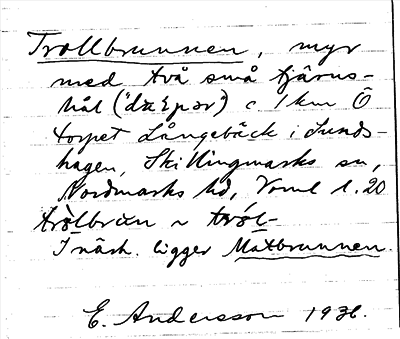 Trollbrunnen, myr
med två små tjärns-
hål ("dæpər) c 1 km Ö
torpet Långebäck i Lunds-
hagen, Skillingmarks sn,
Nordmarks hd, Vrml l. 20
trôlbrɯn ~ trôl-
I närh. ligger Matbrunnen.
E. Andersson 1936.